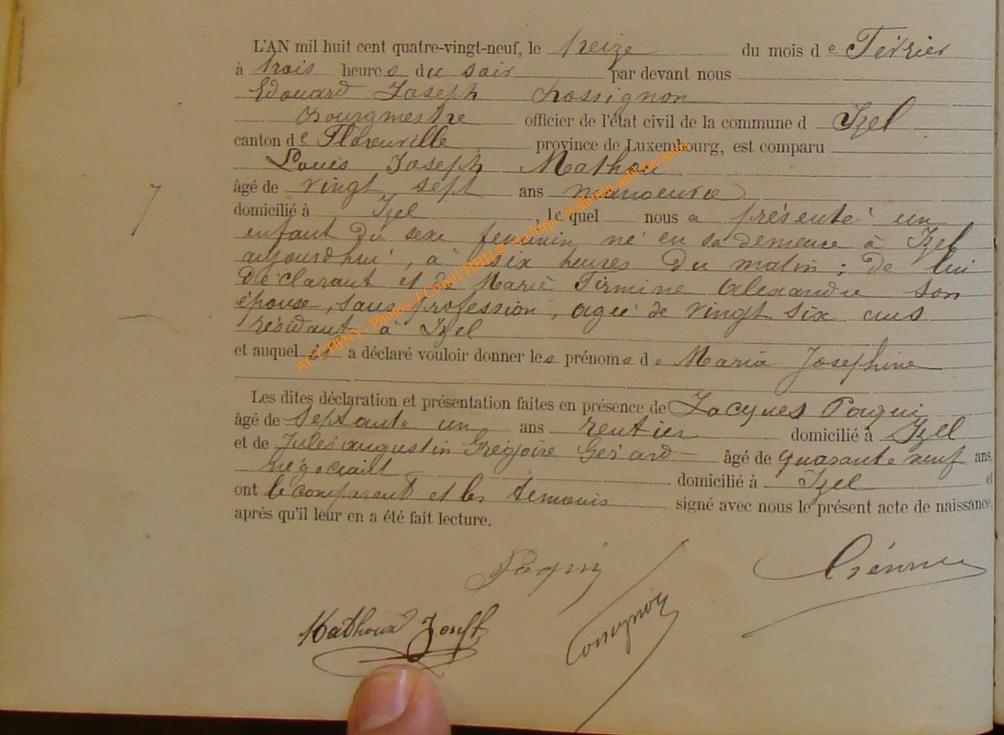 L'AN mil huit cent quatre-vingt-neuf, le treize du mois de Février
à trois heures du soir par devant nous
Edouard Joseph Rossignon
Bourgmestre officier de l'état civil de la commune d Izel
canton de Florenville province de Luxembourg, est comparu
Louis Joseph
âgé de vingt sept ans manoeuvre
domicilié à Izel, le quel nous a présenté un
enfant du sexe féminin, né en sa demeure à Izel
aujourdhui, à six heures du matin; de lui
déclarant et de Marie Firmine Alexandre son
épouse, sans profession, agée de vingt six ans
résidant à Izel
et auquel il a déclaré vouloir donner les prénoms de Maria Josephine
Les dites déclaration et présentation faites en présence de Jacques Paquis
âgé de septante un ans rentier domicilié à Izel
et de Jules augustin Grégoire Gérard âgé de quarante neuf ans,
négociant domicilié à Izel et
ont le comparant et les témoins signé avec nous le présent acte de naissance,
après qu'il leur en a été fait lecture.
Mathoux Joseph
7